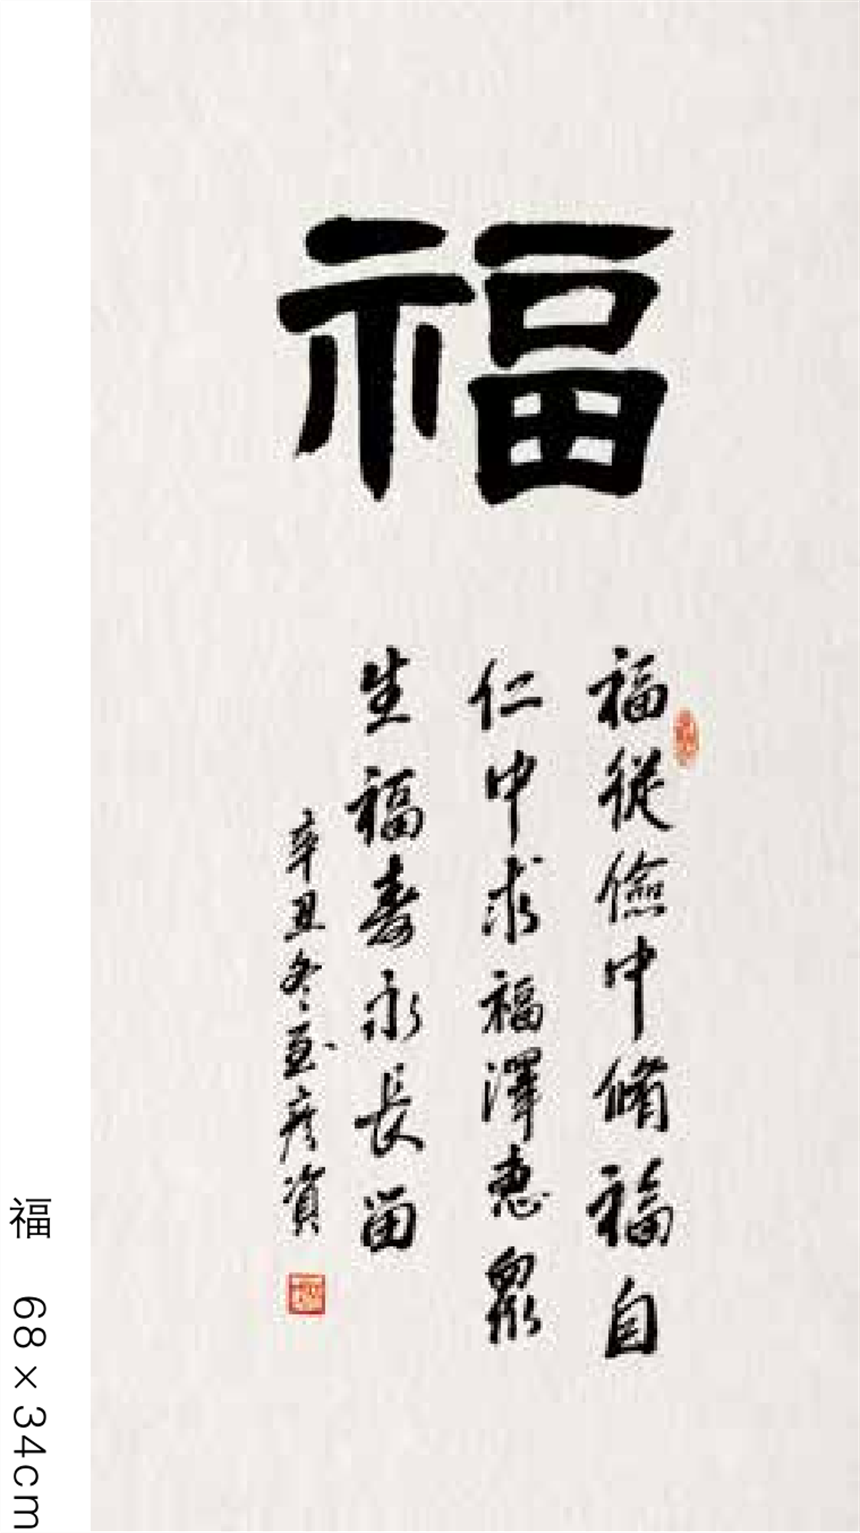 福
福從儉中脩福自
仁中求福澤惠眾
生福壽永長留
辛丑冬至彦資
福 68×34cm